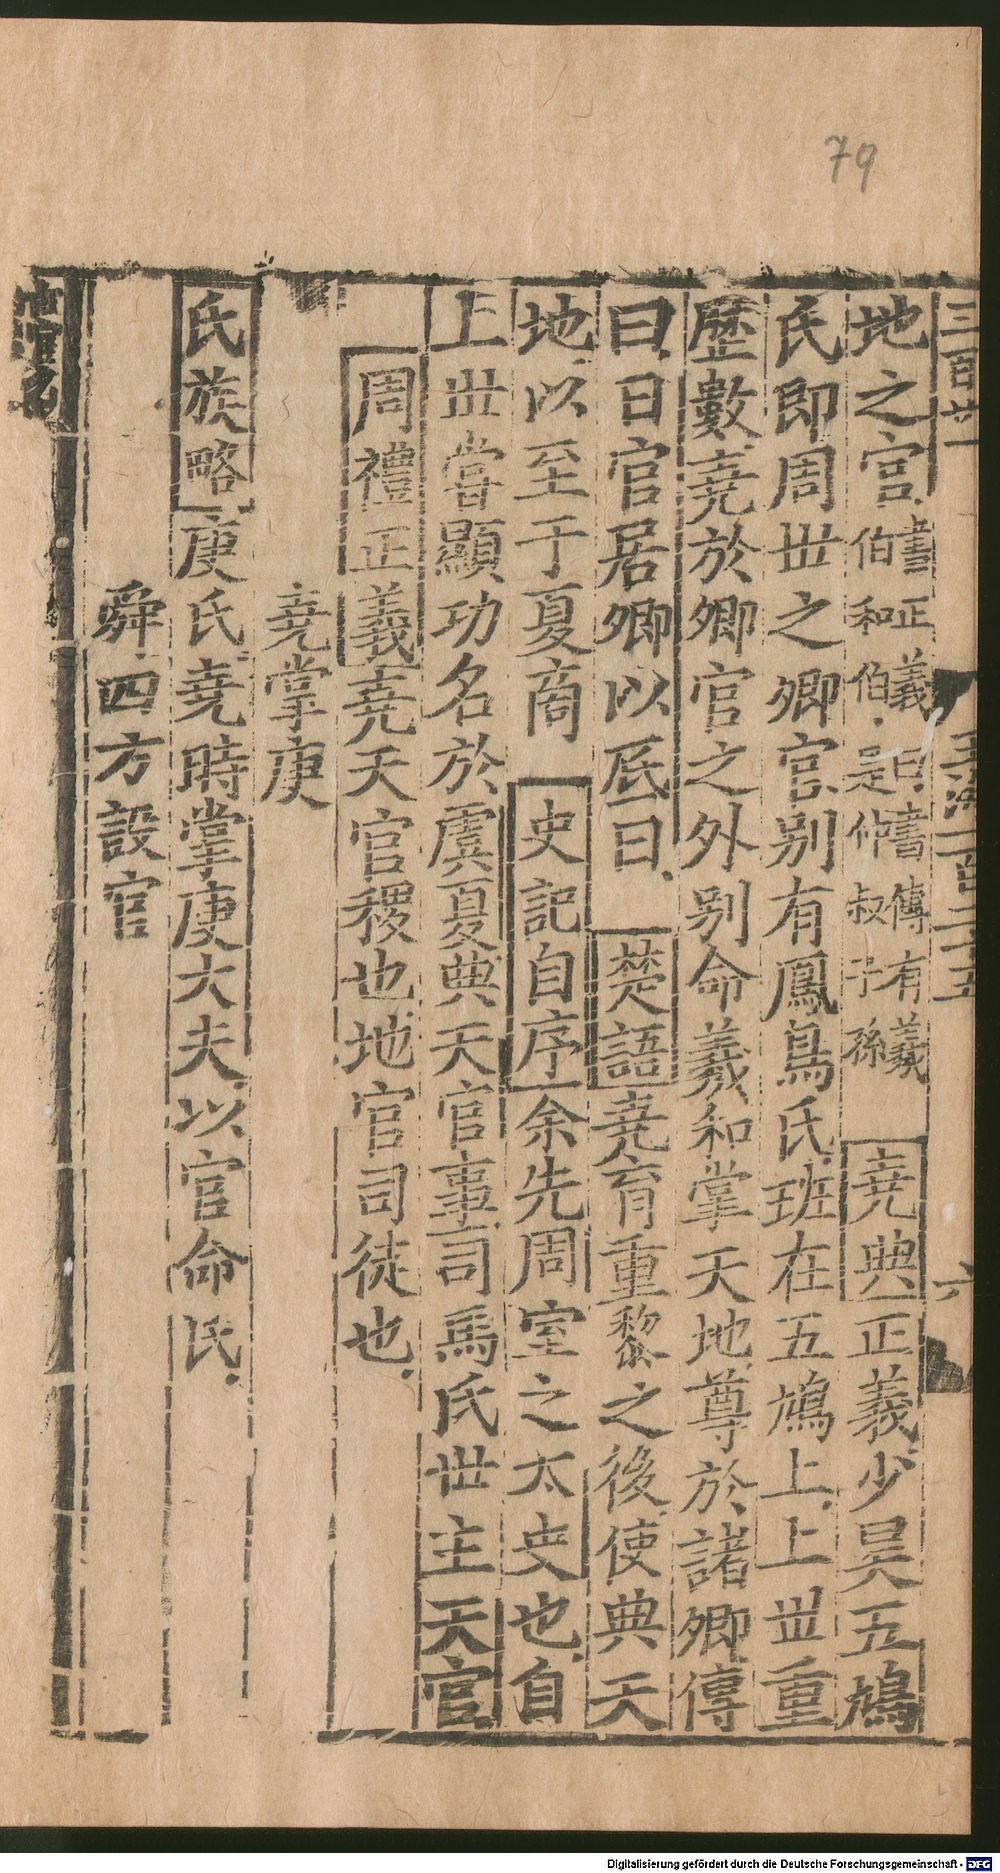 79
三百廿一
玉海一百二十五
六
地之官書正義曰書傳有羲伯和伯是仲叔子孫堯典正義少昊五鳩
氏即周世之卿官別有鳳鳥氏班在五鳩上上世重
歷數堯於卿官之外別命羲和掌天地尊於諸卿傳
曰日官居卿以厎日楚語堯育重黎之後使典天
地以至于夏商史記自序余先周室之太史也自
上世嘗顯功名於虞夏典天官事司馬氏世主天官
周禮正義堯天官稷也地官司徒也
堯掌庾
氏族略庾氏堯時掌庾大夫以官命氏
舜四方設官
Digitalisierung gefördert durch die Deutsche Forschungsgemeinschaft - DFG